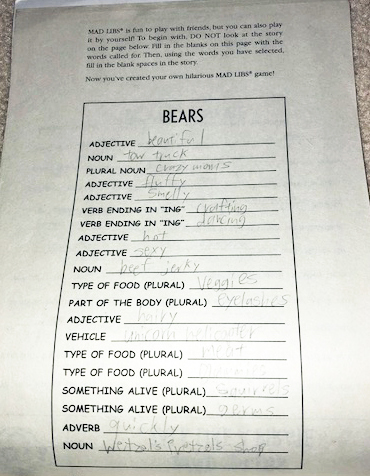 MAD LIBS® is fun to play with friends, but you can also play
it by yourself! To begin with, DO NOT look at the story
on the page below. Fill in the blanks on this page with the
words called for. Then, using the words you have selected,
fill in the blank spaces in the story.
Now you've created your own hilarious MAD LIBS® game!
BEARS
ADJECTIVE beautiful
NOUN tow truck
PLURAL NOUN crazy moms
ADJECTIVE fluffy
ADJECTIVE Smelly
VERB ENDING IN "ING" crafting
VERB ENDING IN "ING" dancing
ADJECTIVE hot
ADJECTIVE sexy
NOUN beef jerky
TYPE OF FOOD (PLURAL) Veggies
PART OF THE BODY (PLURAL) eyelashes
ADJECTIVE hairy
VEHICLE unicorn helicopter
TYPE OF FOOD (PLURAL) meat
TYPE OF FOOD (PLURAL)
SOMETHING ALIVE (PLURAL) squirrels
SOMETHING ALIVE (PLURAL) germs
ADVERB quickly
NOUN Wetzal's Pretzals shop